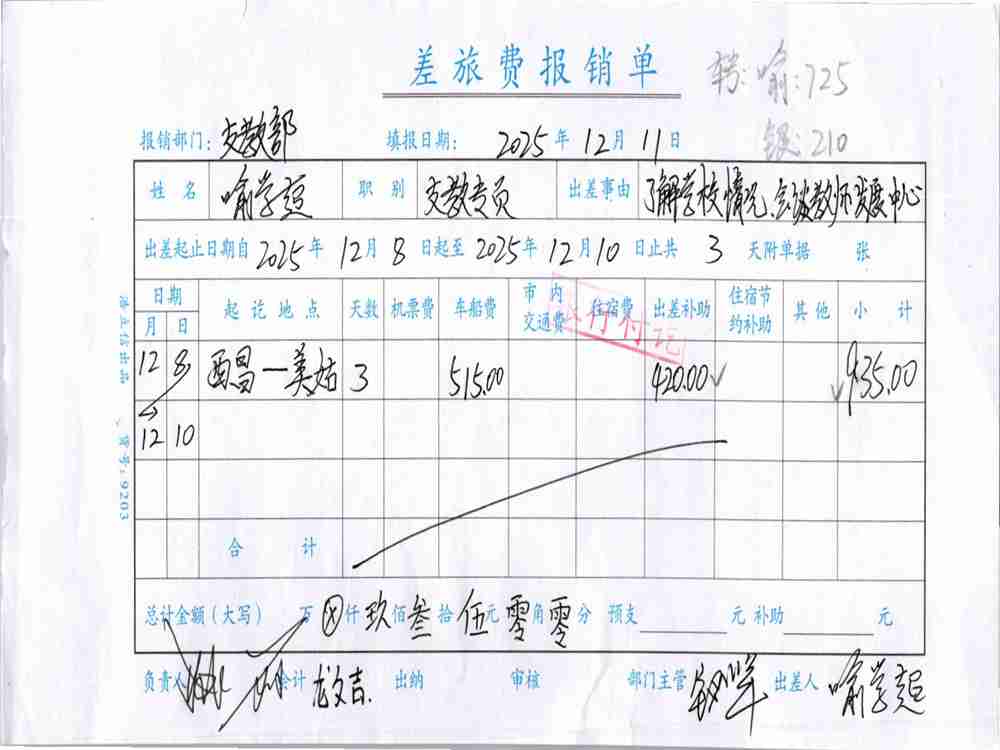 差旅费报销单
转:喻:725
银:210
报销部门:支教部 填报日期: 2025年12月11日
姓名 喻学超 职别 支教专员 出差事由 了解学校情况、会谈教师发展中心
出差起止日期自2025年12月8日起至2025年12月10日止共3天附单据 张
日期 起讫地点 天数 机票费 车船费 市内交通费 住宿费 出差补助 住宿节约补助 其他 小计
月 日
银行付讫
12 8 西昌—美姑 3 515.00 420.00 935.00
12 10
合计
总计金额(大写) 万 仟玖佰叁拾伍元零角零分 预支 元 补助 元
负责人 会计 龙文吉 出纳 审核 部门主管 出差人 喻学超
货号:9203